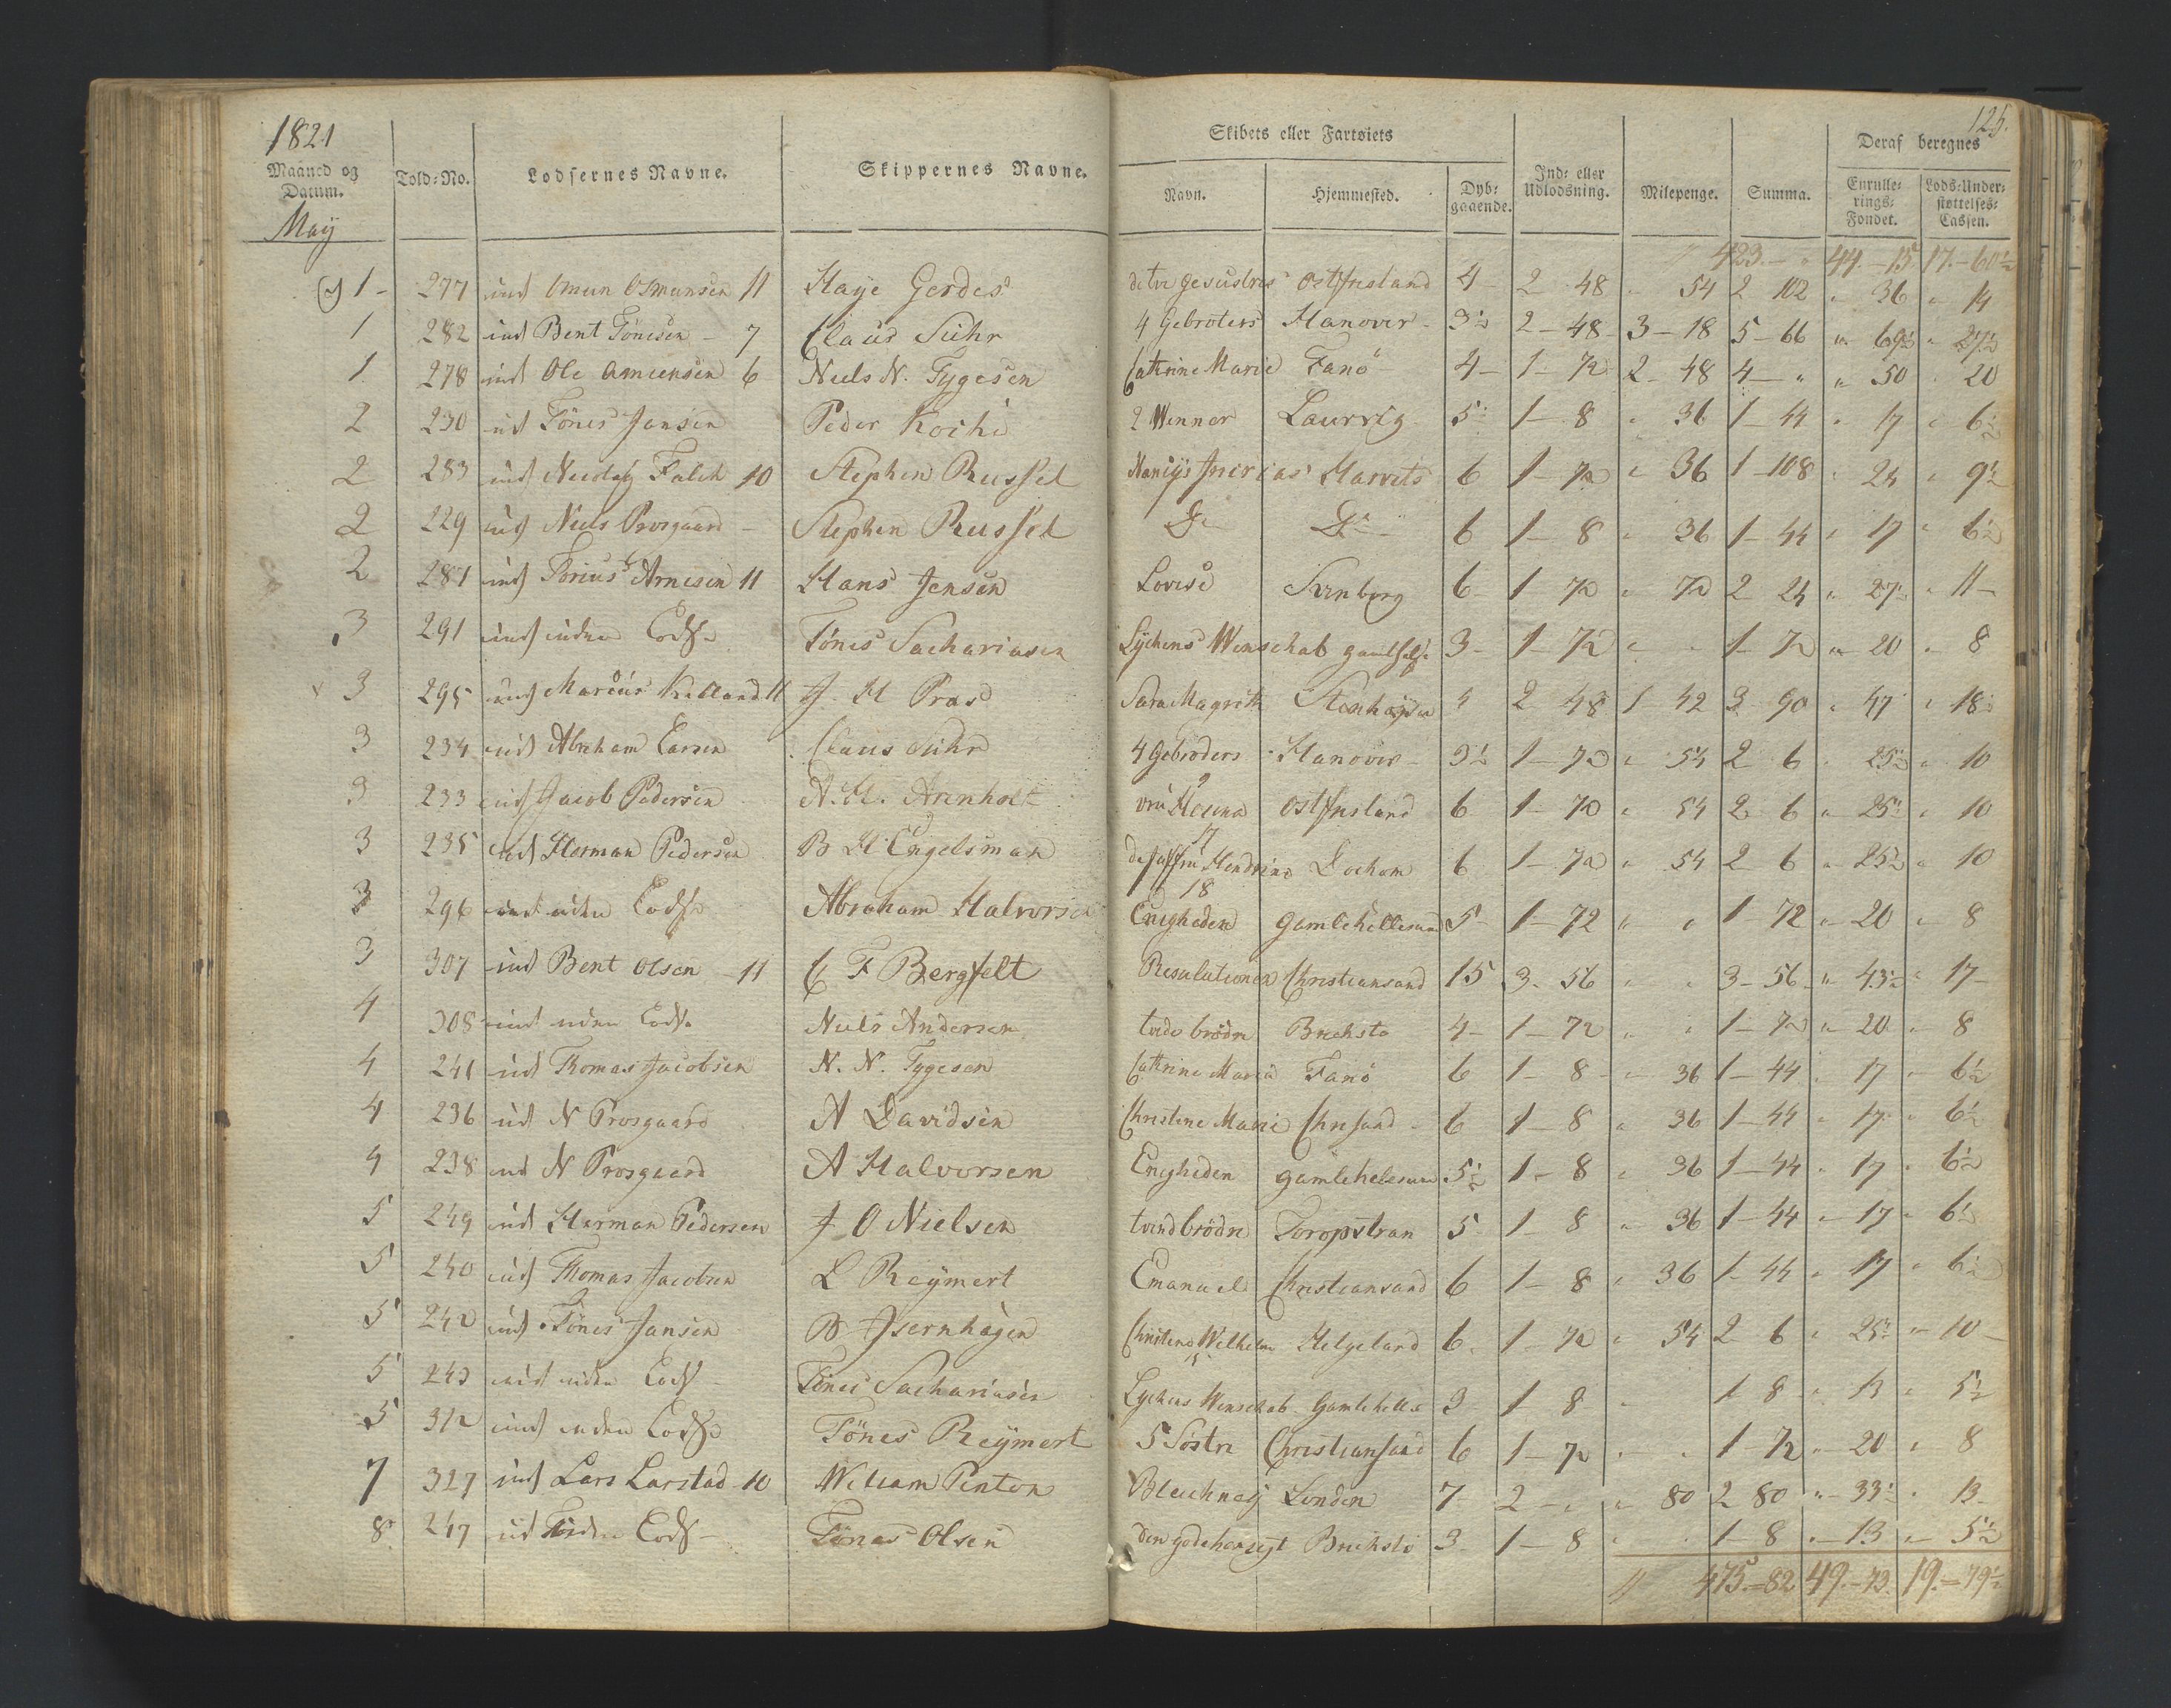 1821
125.
Maaned og Datum. Told-No. Lodsernes Navne. Skippernes Navne. Skibets eller Fartøiets Navn. Hjemmested. Dybgaaende. Ind- eller Udlodsning. Milepenge. Summa. Deraf beregnes Enrullerings-Fondet. Lods-Understøttelses-Cassen.
May
423 - " 44 - 15 17 - 60½
1 - 277 ind Omun Osmunsen 11 Haye Gerdes de tve gesustres Ostfrisland 4 2 48 " 54 2 102 " 36 " 14
1 282 ind Bent Tönesen - 7 Claus Suhr 4 Gebroters Hanover 3½ 2 - 48 3 - 18 5 - 66 " 69½ " 27½
1 278 ind Ole 6 Niels N. Tygesen Cathrine Marie Fanö 4 - 1 - 72 2 - 48 4 - " " 50 " 20
2 230 ud Tönes Jansen Peder Koche 2 Wenner Laurvig 5 1 - 8 " 36 1 - 44 " 17 " 6½
2 283 ind Falch 10 Stephen Russel 6 1 - 72 " 36 1 - 108 " 24 " 9½
2 229 ud Niels Prosgaard - Stephen Russel Do Do 6 1 - 8 " 36 1 - 44 " 17 " 6½
2 287 ind Torius Arnesen 11 Hans Jensen Lovise Svenborg 6 - 1 72 " 72 2 24 " 27 " 11 -
3 291 ind uden Lods Tönes Sachariasen Lykens Wenschab 3 - 1 - 72 " " 1 - 72 " 20 " 8
3 295 ind Marcus Kalland 11 J. H Pras Sara Magreth 4 2 48 1 42 3 90 " 47 " 18½
3 234 ud Abraham Larsen Claus Suhr 4 Gebroders Hanover - 3½ 1 - 72 " 54 2 6 " 25½ " 10
3 233 ud Jacob Pedersen A. H. Arenholt 9 Ostfrisland 6 1 - 72 " 54 2 6 " 25½ " 10
3 235 ud Herman Pedersen B H Engelsman 17 de Juffru Hendrina Dockom 6 1 - 72 " 54 2 6 " 25½ " 10
3 296 ind uden Lods Abraham Halvorsen 18 Enigheden Gamlehellesund 5 - 1 - 72 " " 1 - 72 " 20 " 8
3 307 ind Bent Olsen - 11 C F Bergfelt Resolutionen Christiansand 15 3 - 56 " " 3 - 56 " 43½ " 17 -
4 308 ind uden Lods Niels Andersen tvde brödre Breksto 4 - 1 - 72 " " 1 - 72 " 20 " 8
4 241 ud Thomas Jacobsen N. N. Tygesen Cathrine Marie Fanö 6 1 - 8 - " 36 1 - 44 " 17 " 6½
4 236 ud N Prosgaard A Davidsen Christine Marie Chrsand 6 1 - 8 " 36 1 - 44 " 17 " 6½
4 238 ud N Prosgaard A Halvorsen Enigheden gamlehelesund 5½ 1 - 8 " 36 1 - 44 " 17 " 6½
5 249 ud Herman Pedersen J O Nielsen tvend brödre Toropstran 5 1 - 8 " 36 1 - 44 " 17 " 6½
5 240 ud Thomas Jacobsen L Reymert Emanuel Christiansand 6 1 - 8 " 36 1 - 44 " 17 " 6½
5 242 ud Tönes Jansen Isernhagen Christine Wilhelm 15 Helgeland 6 1 - 72 " 54 2 6 " 25½ " 10 -
5 243 ud uden Lods - Tönes Sachariasen Lykens Wenschab Gamlehelle 3 1 8 " 1 8 " 13 " 5½
5 312 ind uden Lods Tönes Reymert 5 Söstre Christiansand 6 1 - 72 " " 1 - 72 " 20 " 8
7 327 ind Lars Larstad 10 William Penton London 7 2 - " " 80 2 80 " 33½ " 13
8 247 ud uden Lods - Tönes Olsen den gode hensigt Breksto 3 1 - 8 " 1 - 8 " 13 " 5½
475 - 82 49 - 73 19 - 79½